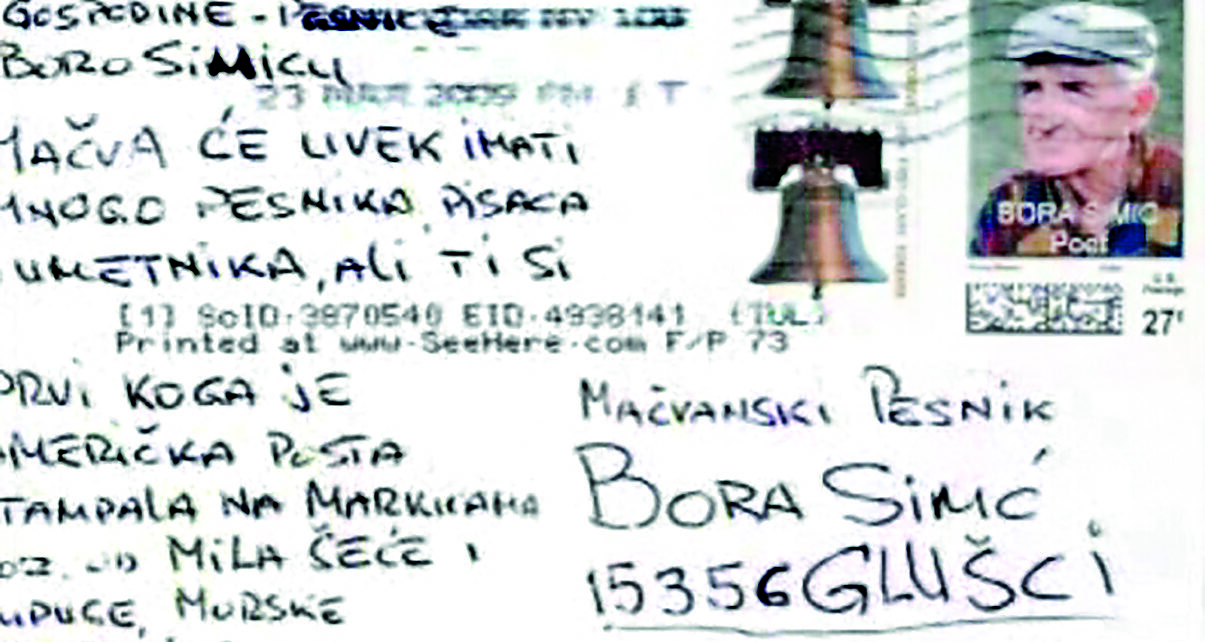 GOSPODINE - PESNIČE
BORO SIMIĆU
23 MAR 2009 PM
MAČVA ĆE UVEK IMATI
MNOGO PESNIKA, PISACA
UMETNIKA, ALI TI SI
[1] SoID:3870540 EID:4938141 (TUL)
Printed at www.SeeHere.com F/P 73
PRVI KOGA JE
AMERIČKA POŠTA
ŠTAMPALA NA MARKICAMA
POZ. OD MILA ŠEĆE I
MURSKE
BORA SIMIC
Poet
U.S.
Postage
27¢
MAČVANSKI PESNIK
BORA SIMIĆ
15356 GLUŠCI